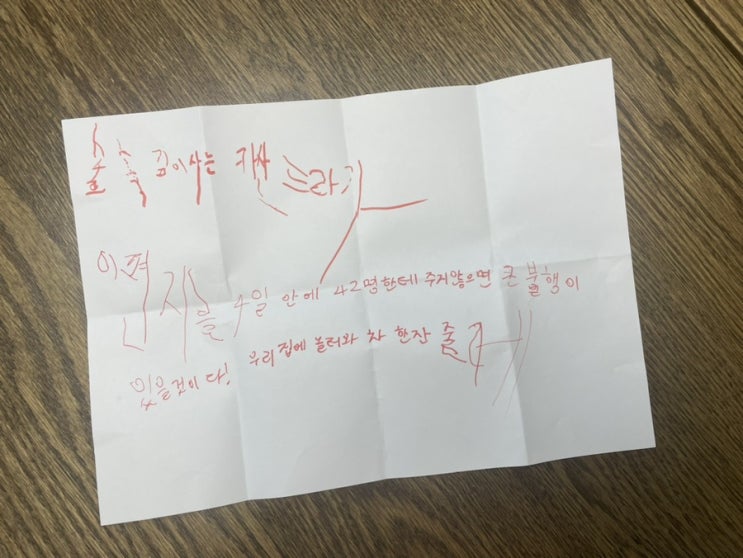 숲속 깊이사는
이편지를 4일 안에 42명한테 주지않으면 큰 불행이
있을것이다! 우리집에 놀러와 차 한잔 줄게